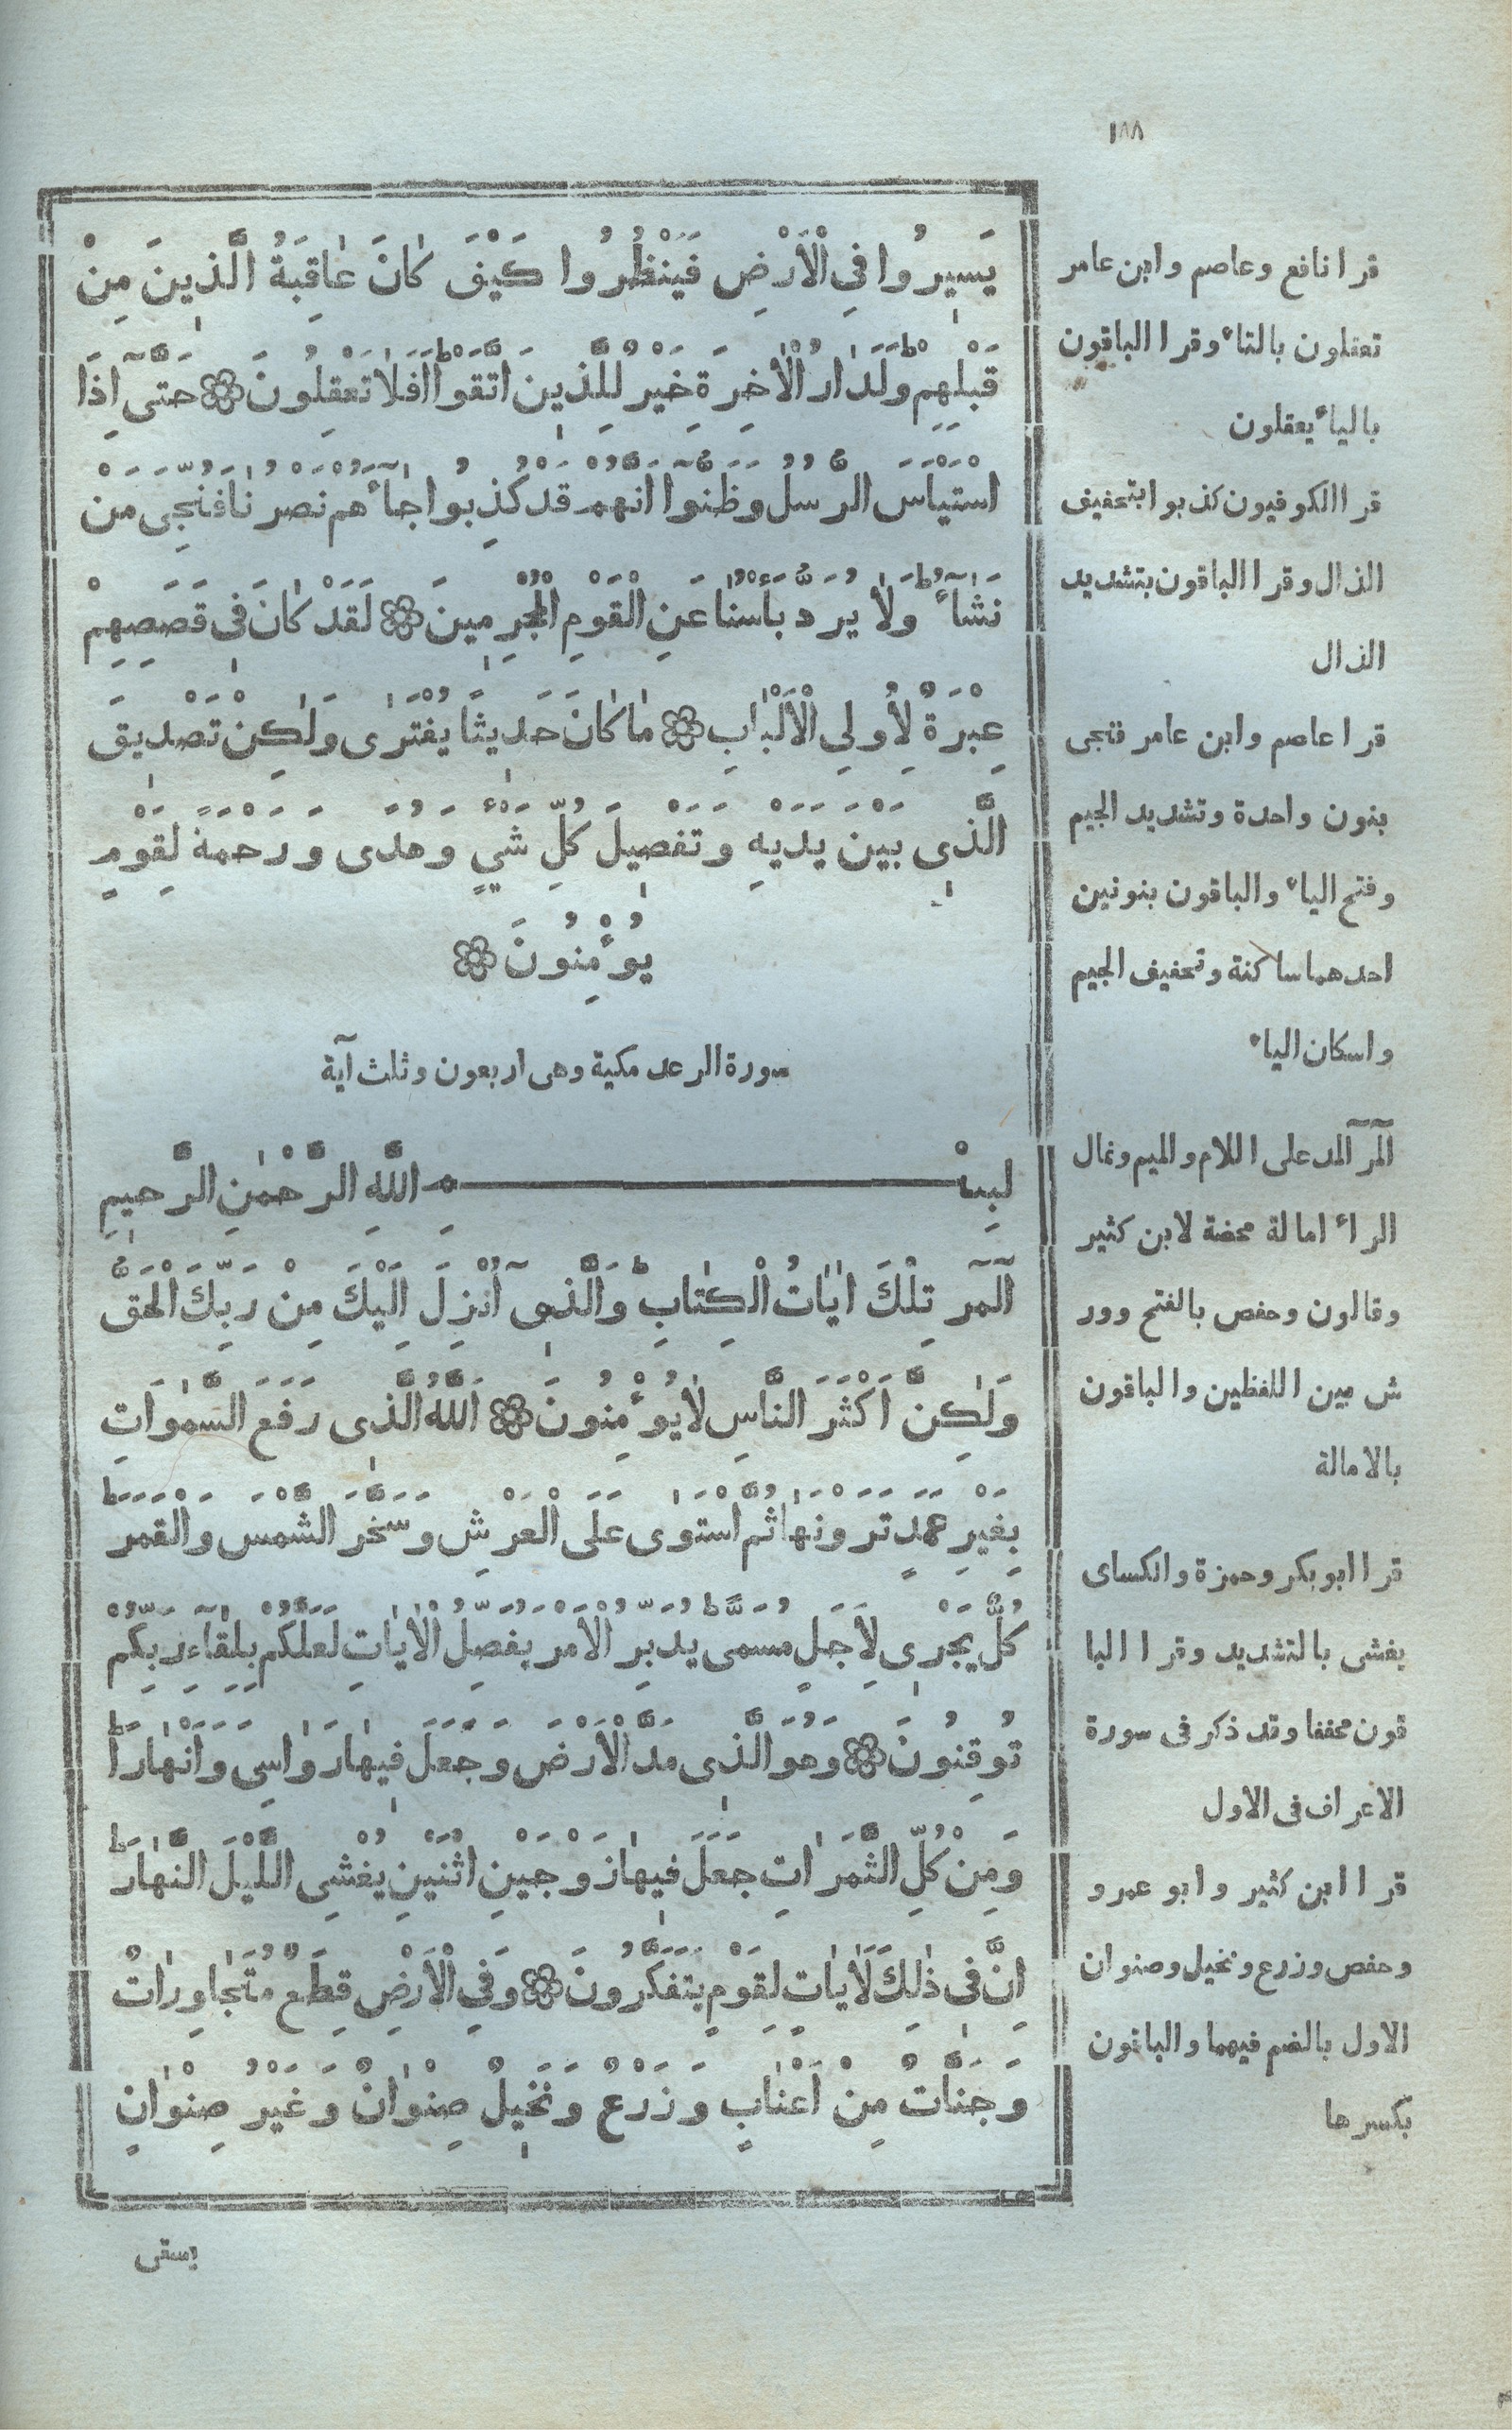 ١٨٨
يَسِيرُوا فِي الْأَرْضِ فَيَنْظُرُوا كَيْفَ كَانَ عَاقِبَةُ الَّذِينَ مِنْ
قَبْلِهِمْ ۗ وَلَدَارُ الْآخِرَةِ خَيْرٌ لِلَّذِينَ اتَّقَوْا ۗ أَفَلَا تَعْقِلُونَ ۞ حَتَّىٓ إِذَا
اسْتَيْأَسَ الرُّسُلُ وَظَنُّوٓا أَنَّهُمْ قَدْ كُذِبُوا جَآءَهُمْ نَصْرُنَا فَنُجِّيَ مَنْ
نَشَآءُ ۖ وَلَا يُرَدُّ بَأْسُنَا عَنِ الْقَوْمِ الْمُجْرِمِينَ ۞ لَقَدْ كَانَ فِي قَصَصِهِمْ
عِبْرَةٌ لِأُولِي الْأَلْبَابِ ۞ مَا كَانَ حَدِيثًا يُفْتَرٰى وَلٰكِنْ تَصْدِيقَ
الَّذِي بَيْنَ يَدَيْهِ وَتَفْصِيلَ كُلِّ شَيْءٍ وَهُدًى وَرَحْمَةً لِقَوْمٍ
يُؤْمِنُونَ ۞
سورة الرعد مكية وهى اربعون وثلث آية
بِسْمِ اللّٰهِ الرَّحْمٰنِ الرَّحِيمِ
الٓمٓرٰ تِلْكَ اٰيَاتُ الْكِتَابِ ۗ وَالَّذِيٓ أُنْزِلَ إِلَيْكَ مِنْ رَبِّكَ الْحَقُّ
وَلٰكِنَّ أَكْثَرَ النَّاسِ لَا يُؤْمِنُونَ ۞ اَللّٰهُ الَّذِي رَفَعَ السَّمٰوَاتِ
بِغَيْرِ عَمَدٍ تَرَوْنَهَا ثُمَّ اسْتَوٰى عَلَى الْعَرْشِ وَسَخَّرَ الشَّمْسَ وَالْقَمَرَ ۗ
كُلٌّ يَجْرِي لِأَجَلٍ مُسَمًّى ۗ يُدَبِّرُ الْأَمْرَ يُفَصِّلُ الْاٰيَاتِ لَعَلَّكُمْ بِلِقَآءِ رَبِّكُمْ
تُوقِنُونَ ۞ وَهُوَ الَّذِي مَدَّ الْأَرْضَ وَجَعَلَ فِيهَا رَوَاسِيَ وَأَنْهَارًا ۗ
وَمِنْ كُلِّ الثَّمَرَاتِ جَعَلَ فِيهَا زَوْجَيْنِ اثْنَيْنِ يُغْشِي اللَّيْلَ النَّهَارَ ۗ
إِنَّ فِي ذٰلِكَ لَاٰيَاتٍ لِقَوْمٍ يَتَفَكَّرُونَ ۞ وَفِي الْأَرْضِ قِطَعٌ مُتَجَاوِرَاتٌ
وَجَنَّاتٌ مِنْ أَعْنَابٍ وَزَرْعٌ وَنَخِيلٌ صِنْوَانٌ وَغَيْرُ صِنْوَانٍ
يسقى
قرا نافع وعاصم وابن عامر
تعقلون بالتاء وقرا الباقون
بالياء يعقلون
قرا الكوفيون كذبوا بتخفيف
الذال وقرا الباقون بتشديد
الذال
قرا عاصم وابن عامر فنجى
بنون واحدة وتشديد الجيم
وفتح الياء والباقون بنونين
احدهما ساكنة وتخفيف الجيم
واسكان الياء
الٓمٓر المد على اللام والميم وتمال
الراء امالة محضة لابن كثير
وقالون وحفص بالفتح وور
ش مين اللفظين والباقون
بالامالة
قرا ابو بكر وحمزة والكساى
يغشى بالتشديد وقرا البا
قون مخففا وقد ذكر فى سورة
الاعراف فى الاول
قرا ابن كثير وابو عمرو
وحفص وزرع ونخيل وصنوان
الاول بالضم فيهما والباقون
بكسرها